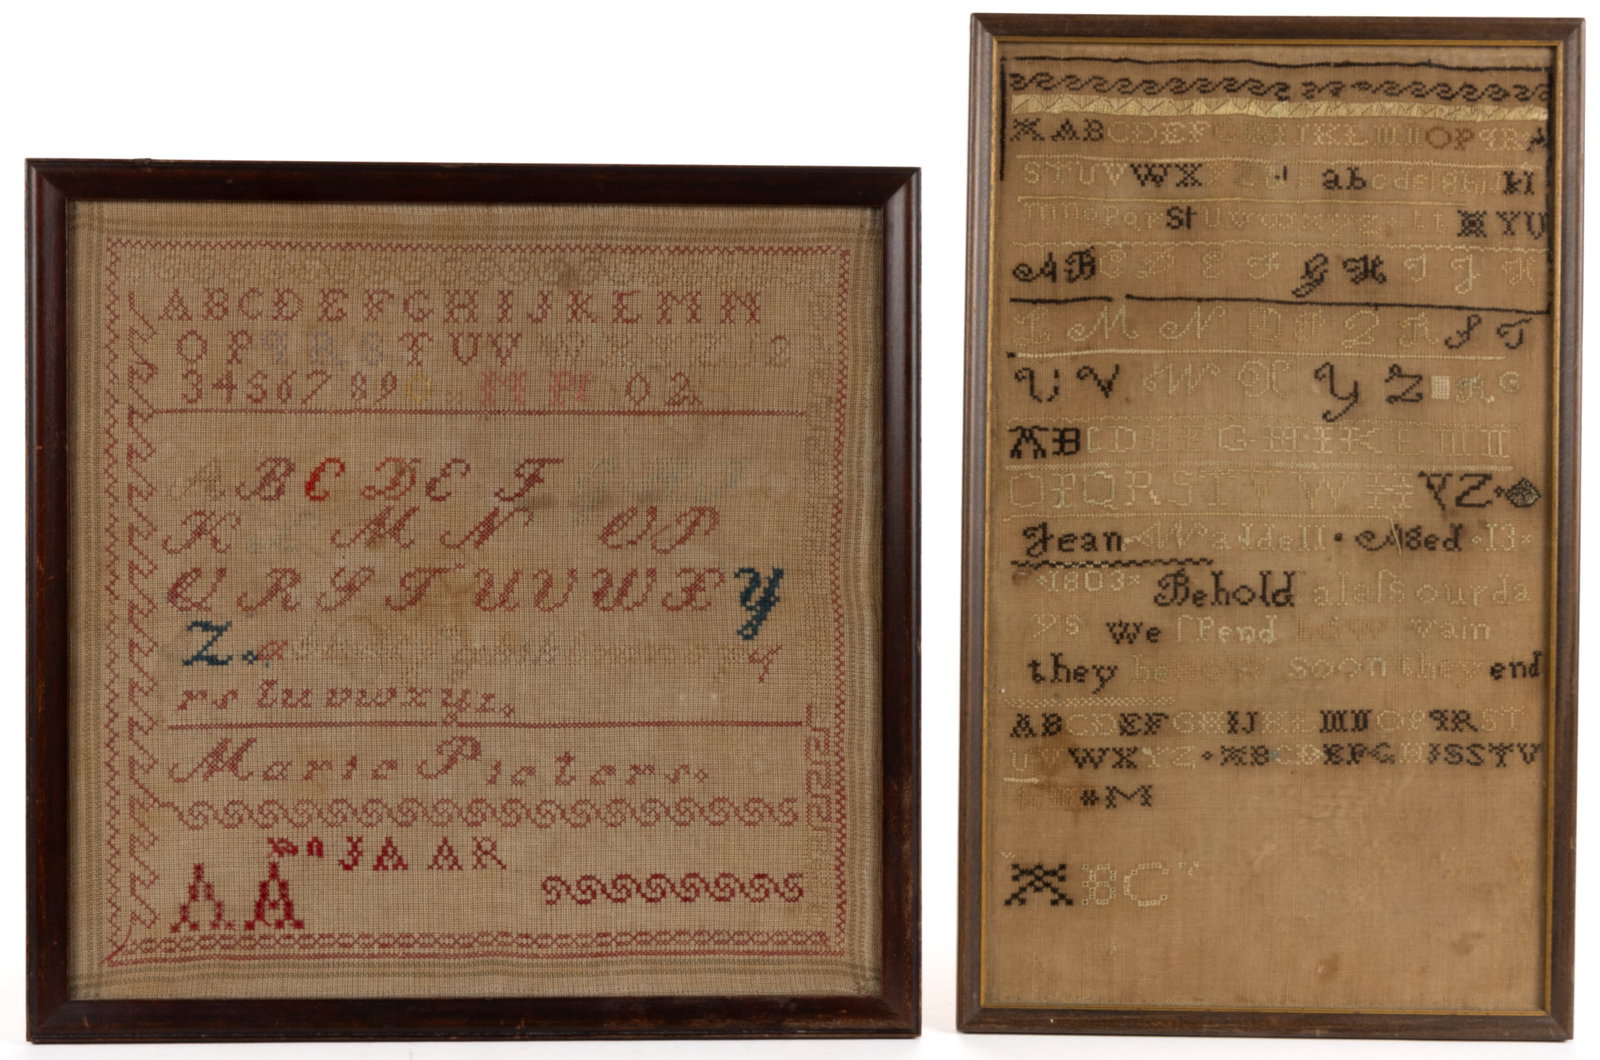 ABCDEFGHIJKLMN
OPQRSTUVWXYZ
34567890
A B C D E F
K L M N O P
Q R S T U V W X Y
Z
rstuvwxyz
Marie Pieters.
A AR
A A
ABCDEFGHIJKLMNOPQR
STUVWXYZ abcdefghi kl
mnopqr st uvwxyz
A B C D E F G H I J K
L M N O P Q R S T
U V W X Y Z
ABCDEFGHIKLMN
OPQRSTVW YZ
Jean Waddell · Aged · 13 ·
1803 Behold alaſs our da
ys We ſpend how vain
they be how soon they end
ABCDEFGHIJKLMNOPQRST
UVWXYZ ABCDEFG
M
A B C